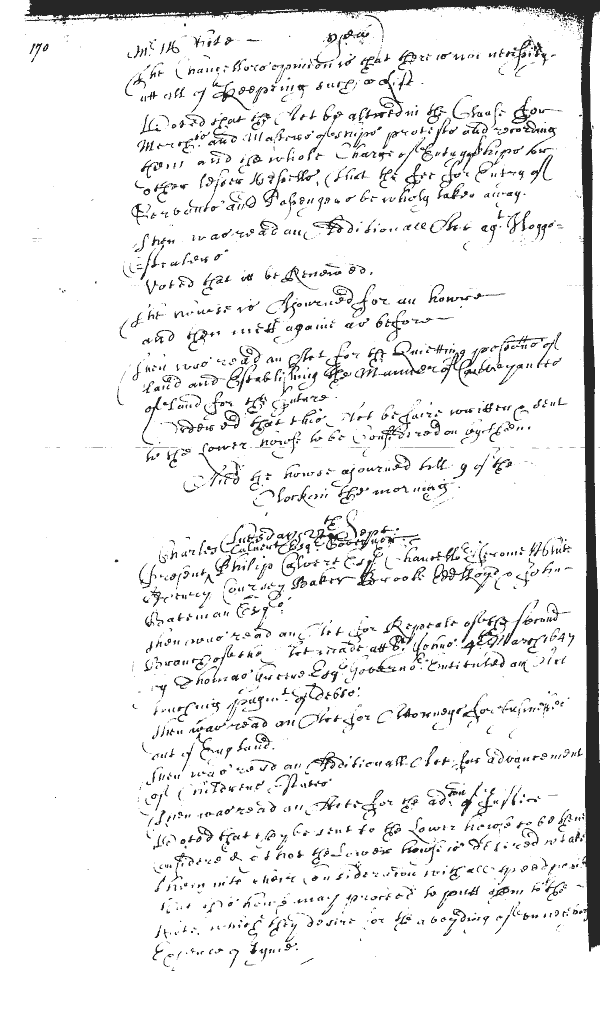 170
Mr White — open
The Chancellors opinion is that there is noe necessity
att all of keeping such a list.
Voted that the Act be altered in the Clause for
Merchts and Masters of ships protests and recording
them and the whole Charge of Entry of ships or
other lesser Vessells, that the fee for Entry of
Servants and Passengers be wholy taken away.
Then was read an Additionall Act agt Hogg-
stealers
Voted that itt be Renewed.
The howse is Ajourned for an howre
and then mett againe as before
Then was read an Act for the Quietting possessions of
Land and Establishing the Manner of Conveyances
of Land for the future
Ordered that this Act be faire written & sent
to the Lower howse to be Considered on by them.
And the howse ajourned till 9 of the
Clock in the morning
Tuesday 27th Sept.
Charles Calvert Esqr Governor
Present Philip Calvert Esqr Chancellr Jerome White
Henery Coursey Baker Brooke Edd Lloyd & John
Bateman Esqrs
Then was read an Act for Repeale of the second
Branch of the Act made att St Johns 4th March 1647
by Thomas Greene Esqr Governor Entituled an Act
touching paymt of debts.
Then was read an Act for Attorneys for businesses
out of England.
Then was read an Additionall Act for advancement
of Childrens Estates
Then was read an Acte for the adv of Justice
Voted that they be sent to the Lower howse to be then
considered & that the Lower howse is desired to take
them into their consideration with all speed possible
that this howse may proceed to putt them to the
Vote, which they desire for the avoyding of unnecessary
Expence of tyme.